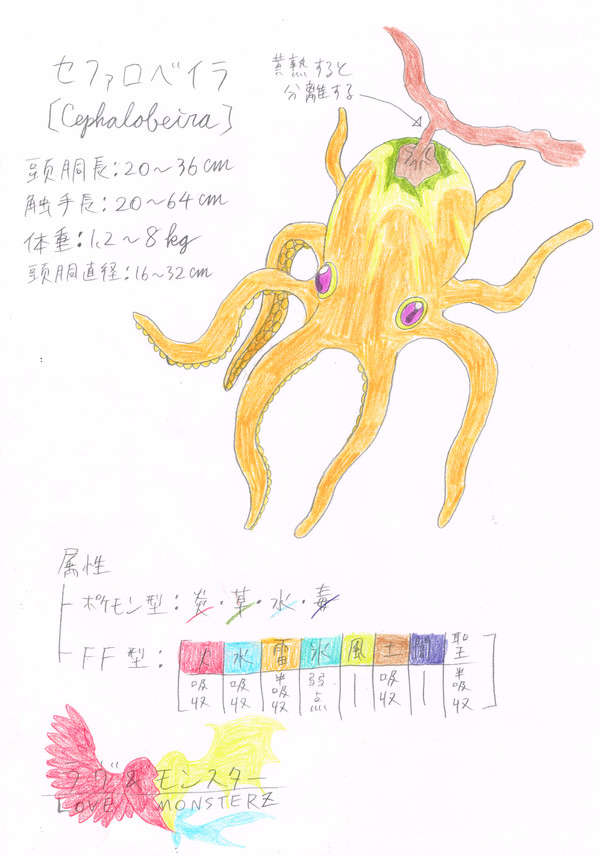 セファロベイラ
[Cephalobeira]
頭胴長:20~36cm
触手長:20~64cm
体重:1.2~8kg
頭胴直径:16~32cm
黄熟すると
分離する
属性
ポケモン型:炎・草・水・毒
FF型:
火 水 雷 氷 風 土 闇 聖
吸収 吸収 半吸収 弱点 - 吸収 - 半吸収
ラヴ&モンスター
LOVE MONSTERZ